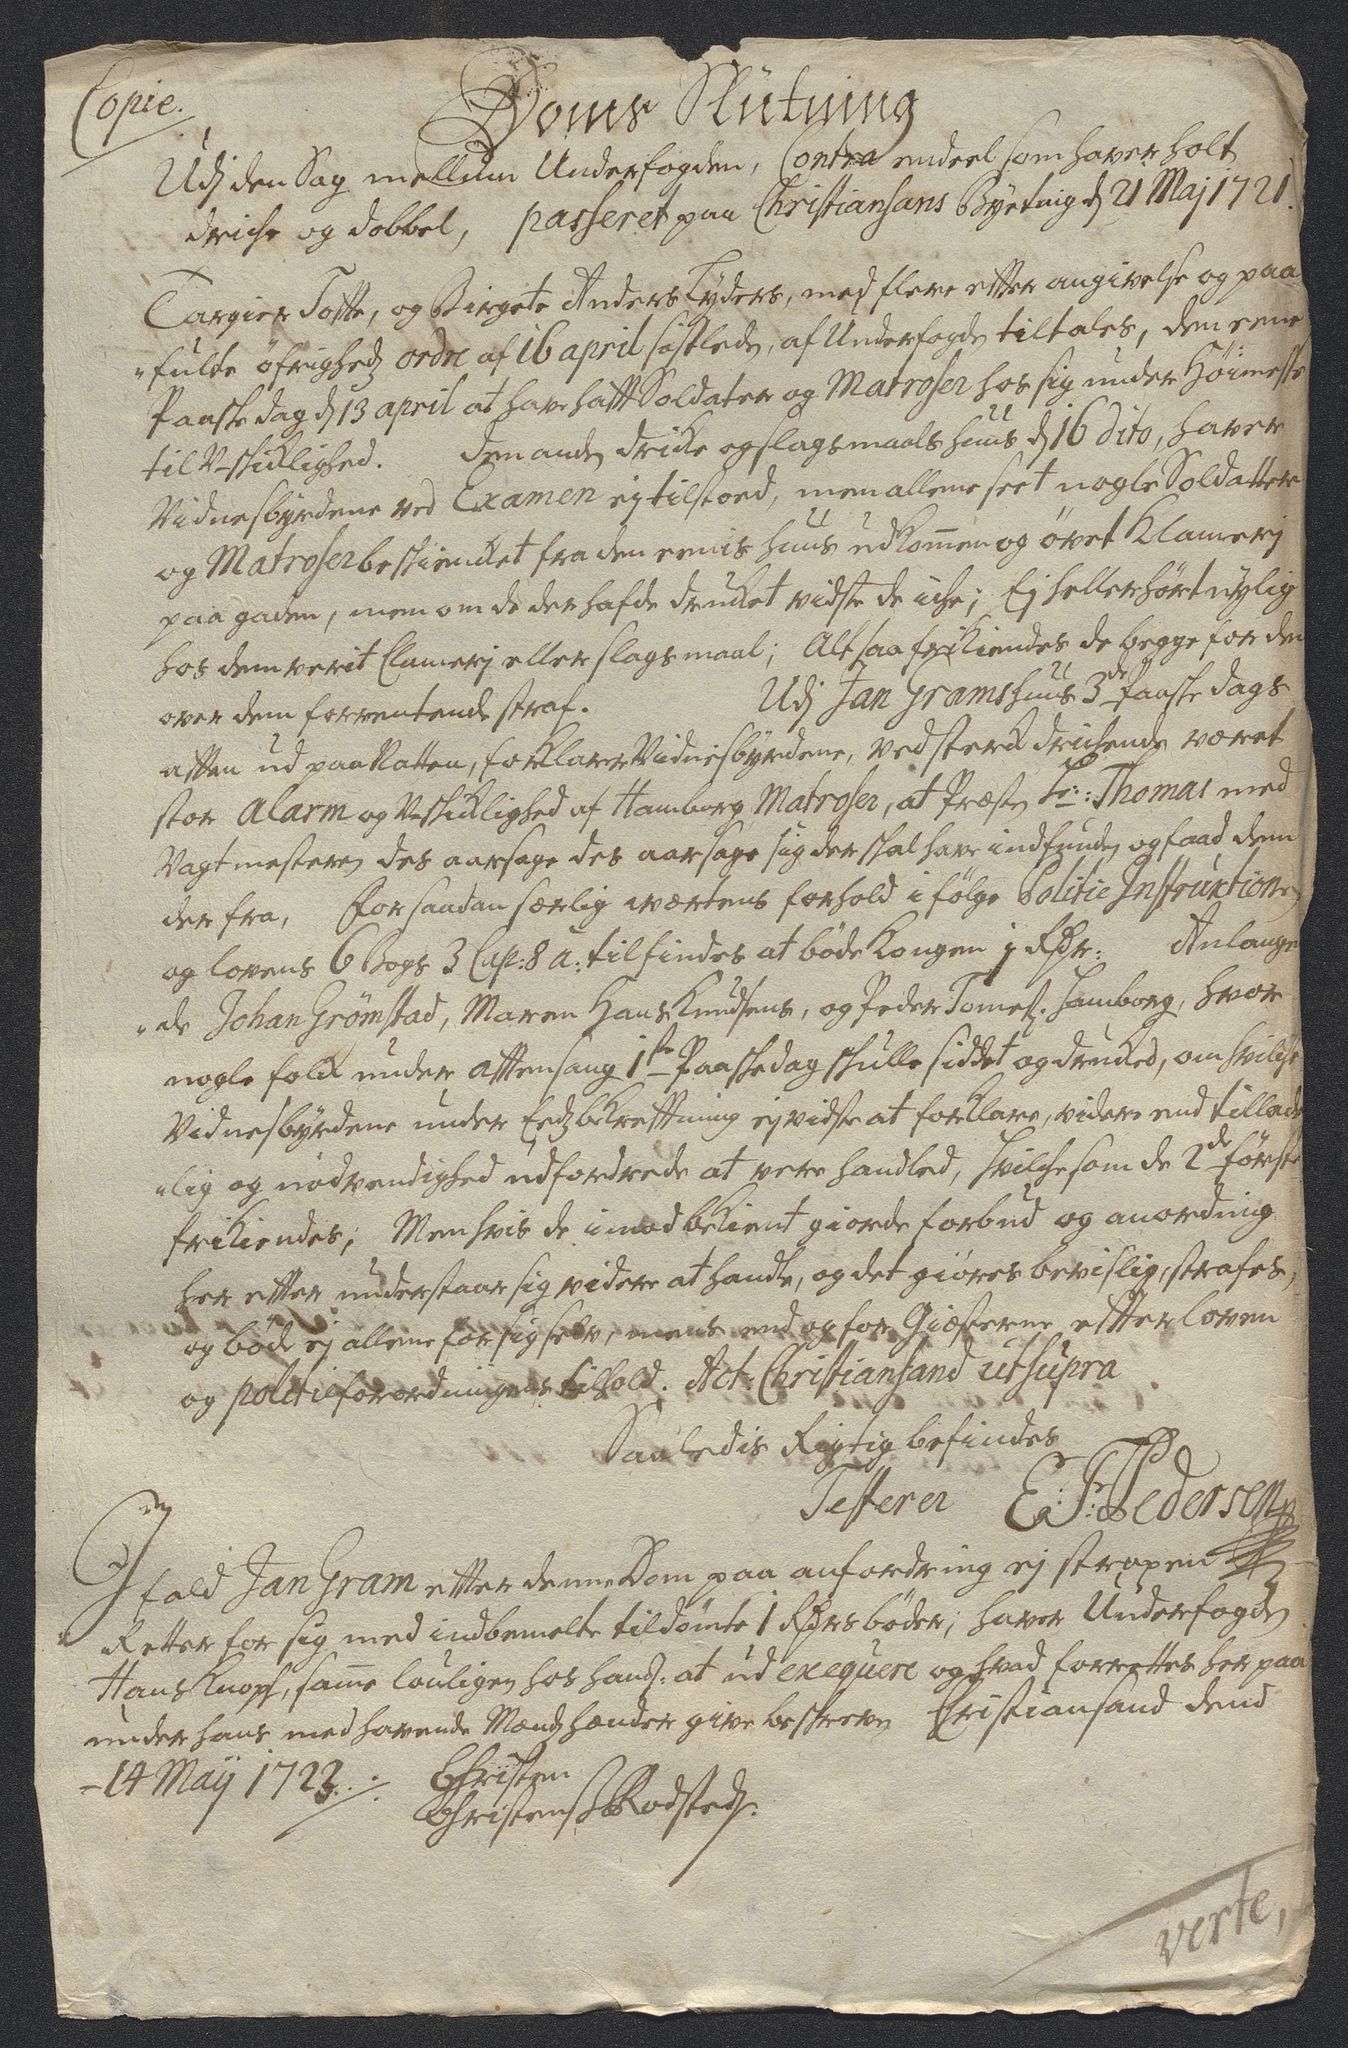 Copie.
Doms Slutning
Udj den Sag mellum Underfogden, Contra endeel som haver holt
driche og dobbel, passeret paa Christiansans Byeting d 21 Maj 1721.
Targier Totte, og Birgete Anders Tyders, med flere efter angivelse og paa
"fulte øfrigheds ordre af 16 april sistleden, af Underfogden tiltales, den eene
Paaske dag d 13 april at have hafft Soldater og Matroser hos sig under Høimesse
til U-skiklighed. den anden drikke og slagsmaals huus d 16 dito, haver
Vidnesbyrdene ved Examen ej tilstoed, men allene seet nogle Soldatter
og Matroser beskienket fra den eenis huus udkommen og øvet Klamerj
paa gaden, men om de der hafde drukket vidste de iche; Ej heller hørt nylig
hos dem verit Clamerj eller slagsmaal; Alt saa frikiendes de begge for den
over dem forventende straf. Udj Jan Grams huus 3de Paaske dags
afften ud paa Natten, forklarer Vidnesbyrdene, ved sterk drichende været
stor Alarm og U-skiklighed af Hamborg Matroser, at Præsten Hr: Thomas med
Vagtmesteren des aarsage des aarsage sig der skal have indfunden og faad dem
der fra, for saadan særlig værtens forhold i følge Politie Instruxtionen
og lovens 6 Bogs 3 Cap: 8 a: tilfindes at bøde Kongen 1 Rdr: Anlangen
"de Johan Grømstad, Maren Hans Knudsens, og Peder Tomes. Hamborg, hvor
nogle folk under afftensang 1ste Paaskedag skulle siddet og drukked, om hvilche
Vidnesbyrdene under Eedz bekrefftning ej vidste at forklare, videre end tillade
"lig og nødvendighed udfordrede at vere handled, hvilche som de 2de første
frikiendes; Men hvis de imod bekient giorde forbud og anordning
her efter understaar sig videre at handle, og det giøres bevislig, strafes,
og bøde ej allene for sig selv, mens end og for Giæsterne efter loven
og politieforordningens tilhold. Act. Christiansand ut supra
Saaledis Rigtig befindes
Testerer E: P: Pedersen
Ifald Jan Gram efter denne Dom paa anfordring ej strapen
Retter for sig med indbemelte tildømte 1 Rdrs bøder; haver Underfogden
Hans Knopf, samme louligen hos hans: at ud exequere og hvad forrettes her paa
under hans med havende Mænds hænder give beskreven Christiansand dend
-14 Maij 1722.
Christen
Christens: Rodsteds.
verte,